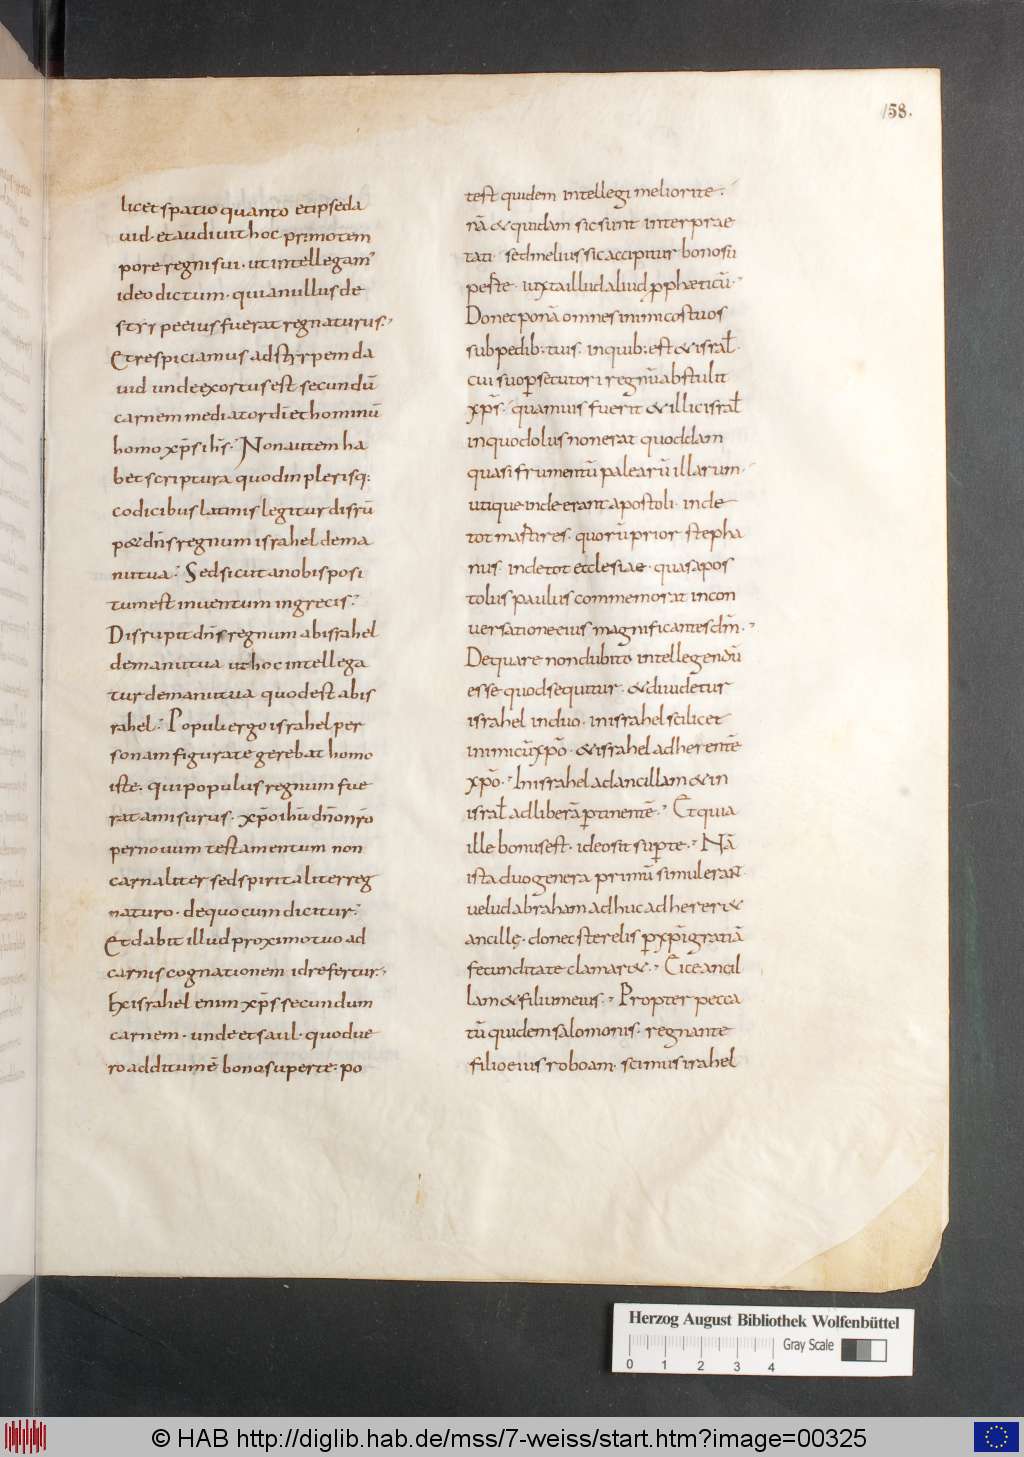 158.
licet spatio quanto et ipse da
uid· et audiuit hoc primo tem
pore regni sui· ut intellegam̄
ideo dictum· quia nullus de
styrpe eius fuerat regnaturus.
Et respiciamus ad styrpem da
uid unde exortus est secundū
carnem mediator dī et hominū
homo xp̄s ih̄s. Non autem ha
bet scriptura quod in plerisq:
codicibus latinis legitur disrū
p& dn̄s regnum israhel de ma
nu tua. Sed sicut a nobis posi
tum est inuentum in grecis.
Disrupit dn̄s regnum ab israhel
de manu tua ut hoc intellega
tur de manu tua quod est ab is
rahel. Populi ergo israhel per
sonam figurate gerebat homo
iste. qui populus regnum fue
rat amisurus. xp̄o ih̄u dn̄o nr̄o
per nouum testamentum non
carnaliter sed spiritaliter reg
naturo· de quo cum dicitur.
Et dabit illud proximo tuo ad
carnis cognationem id refertur.
Ex israhel enim xp̄s secundum
carnem· unde et saul· quod ue
ro additum ē bono super te: po
test quidem intellegi meliori te.
nā & quidam sic sunt interprae
tati sed melius sic accipitur bono sū
per te· iuxta illud aliud p̱rphæticū·
Donec ponā omnes inimicos tuos
sub pedib: tuis. in quib: est & isrƚ·
cui suo p̱secutori regnū abstulit
xp̄s. quamuis fuerit & illic isrƚ
in quo dolus non erat quoddam
quasi frumentū palearū illarum·
utique inde erant apostoli· inde
tot martires· quorū prior stepha
nus· inde tot ecclesiae· quas apos
tolus paulus commemorat in con
uersatione eius magnificantes dm̄.
De qua re non dubito intellegendū
esse quod sequitur· & diuidetur
israhel in duo· in israhel scilicet
inimicū xp̄o· & israhel adherentē
xp̄o. In israhel ad ancillam & in
isrƚ ad liberā p̱tinentē. Et quia
ille bonus est· ideo sit sup̱ te. Nā
ista duo genera primū simul eran̄t
uelud abraham adhuc adherer&
ancillę· donec sterelis p̱ xp̄i gratiā
fecunditate clamar&. Eice ancil
lam & filium eius. Propter pecca
tū quidem salomonis· regnante
filio eius roboam· scimus irahel
Herzog August Bibliothek Wolfenbüttel
Gray Scale
0 1 2 3 4
© HAB http://diglib.hab.de/mss/7-weiss/start.htm?image=00325